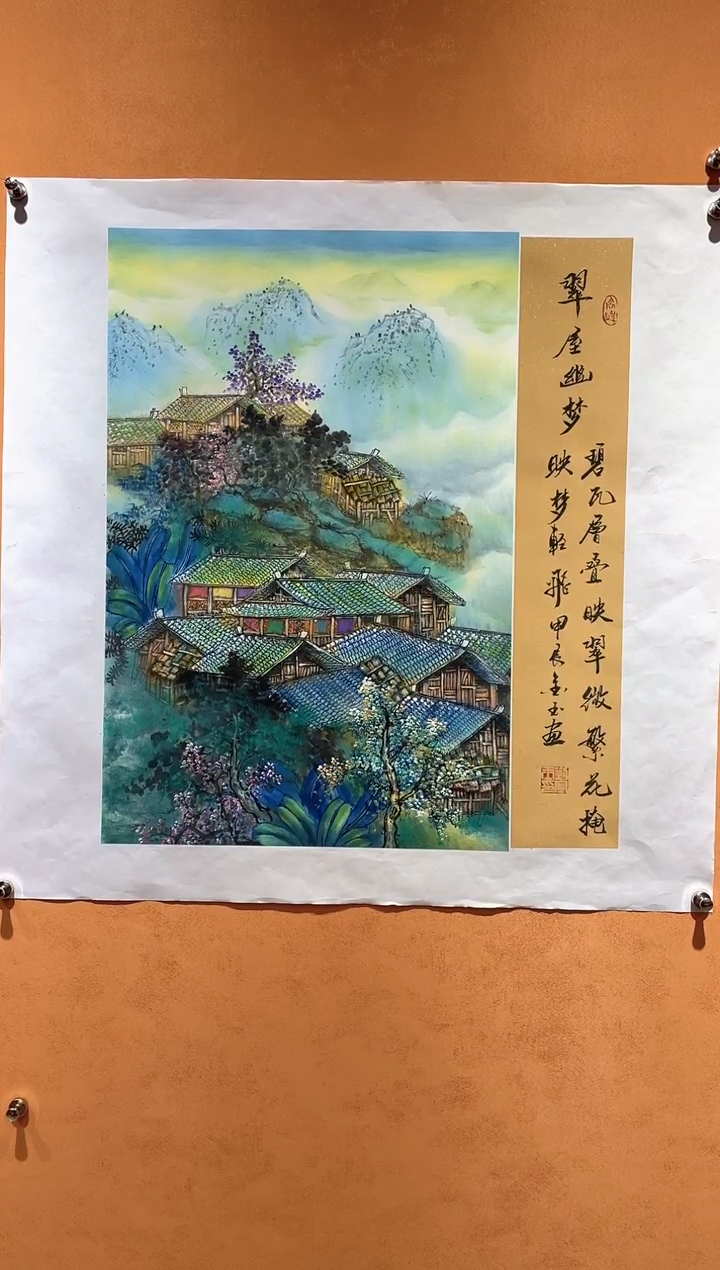 翠屋幽梦
碧瓦层叠映翠微繁花掩
映梦轻飛甲辰金玉画